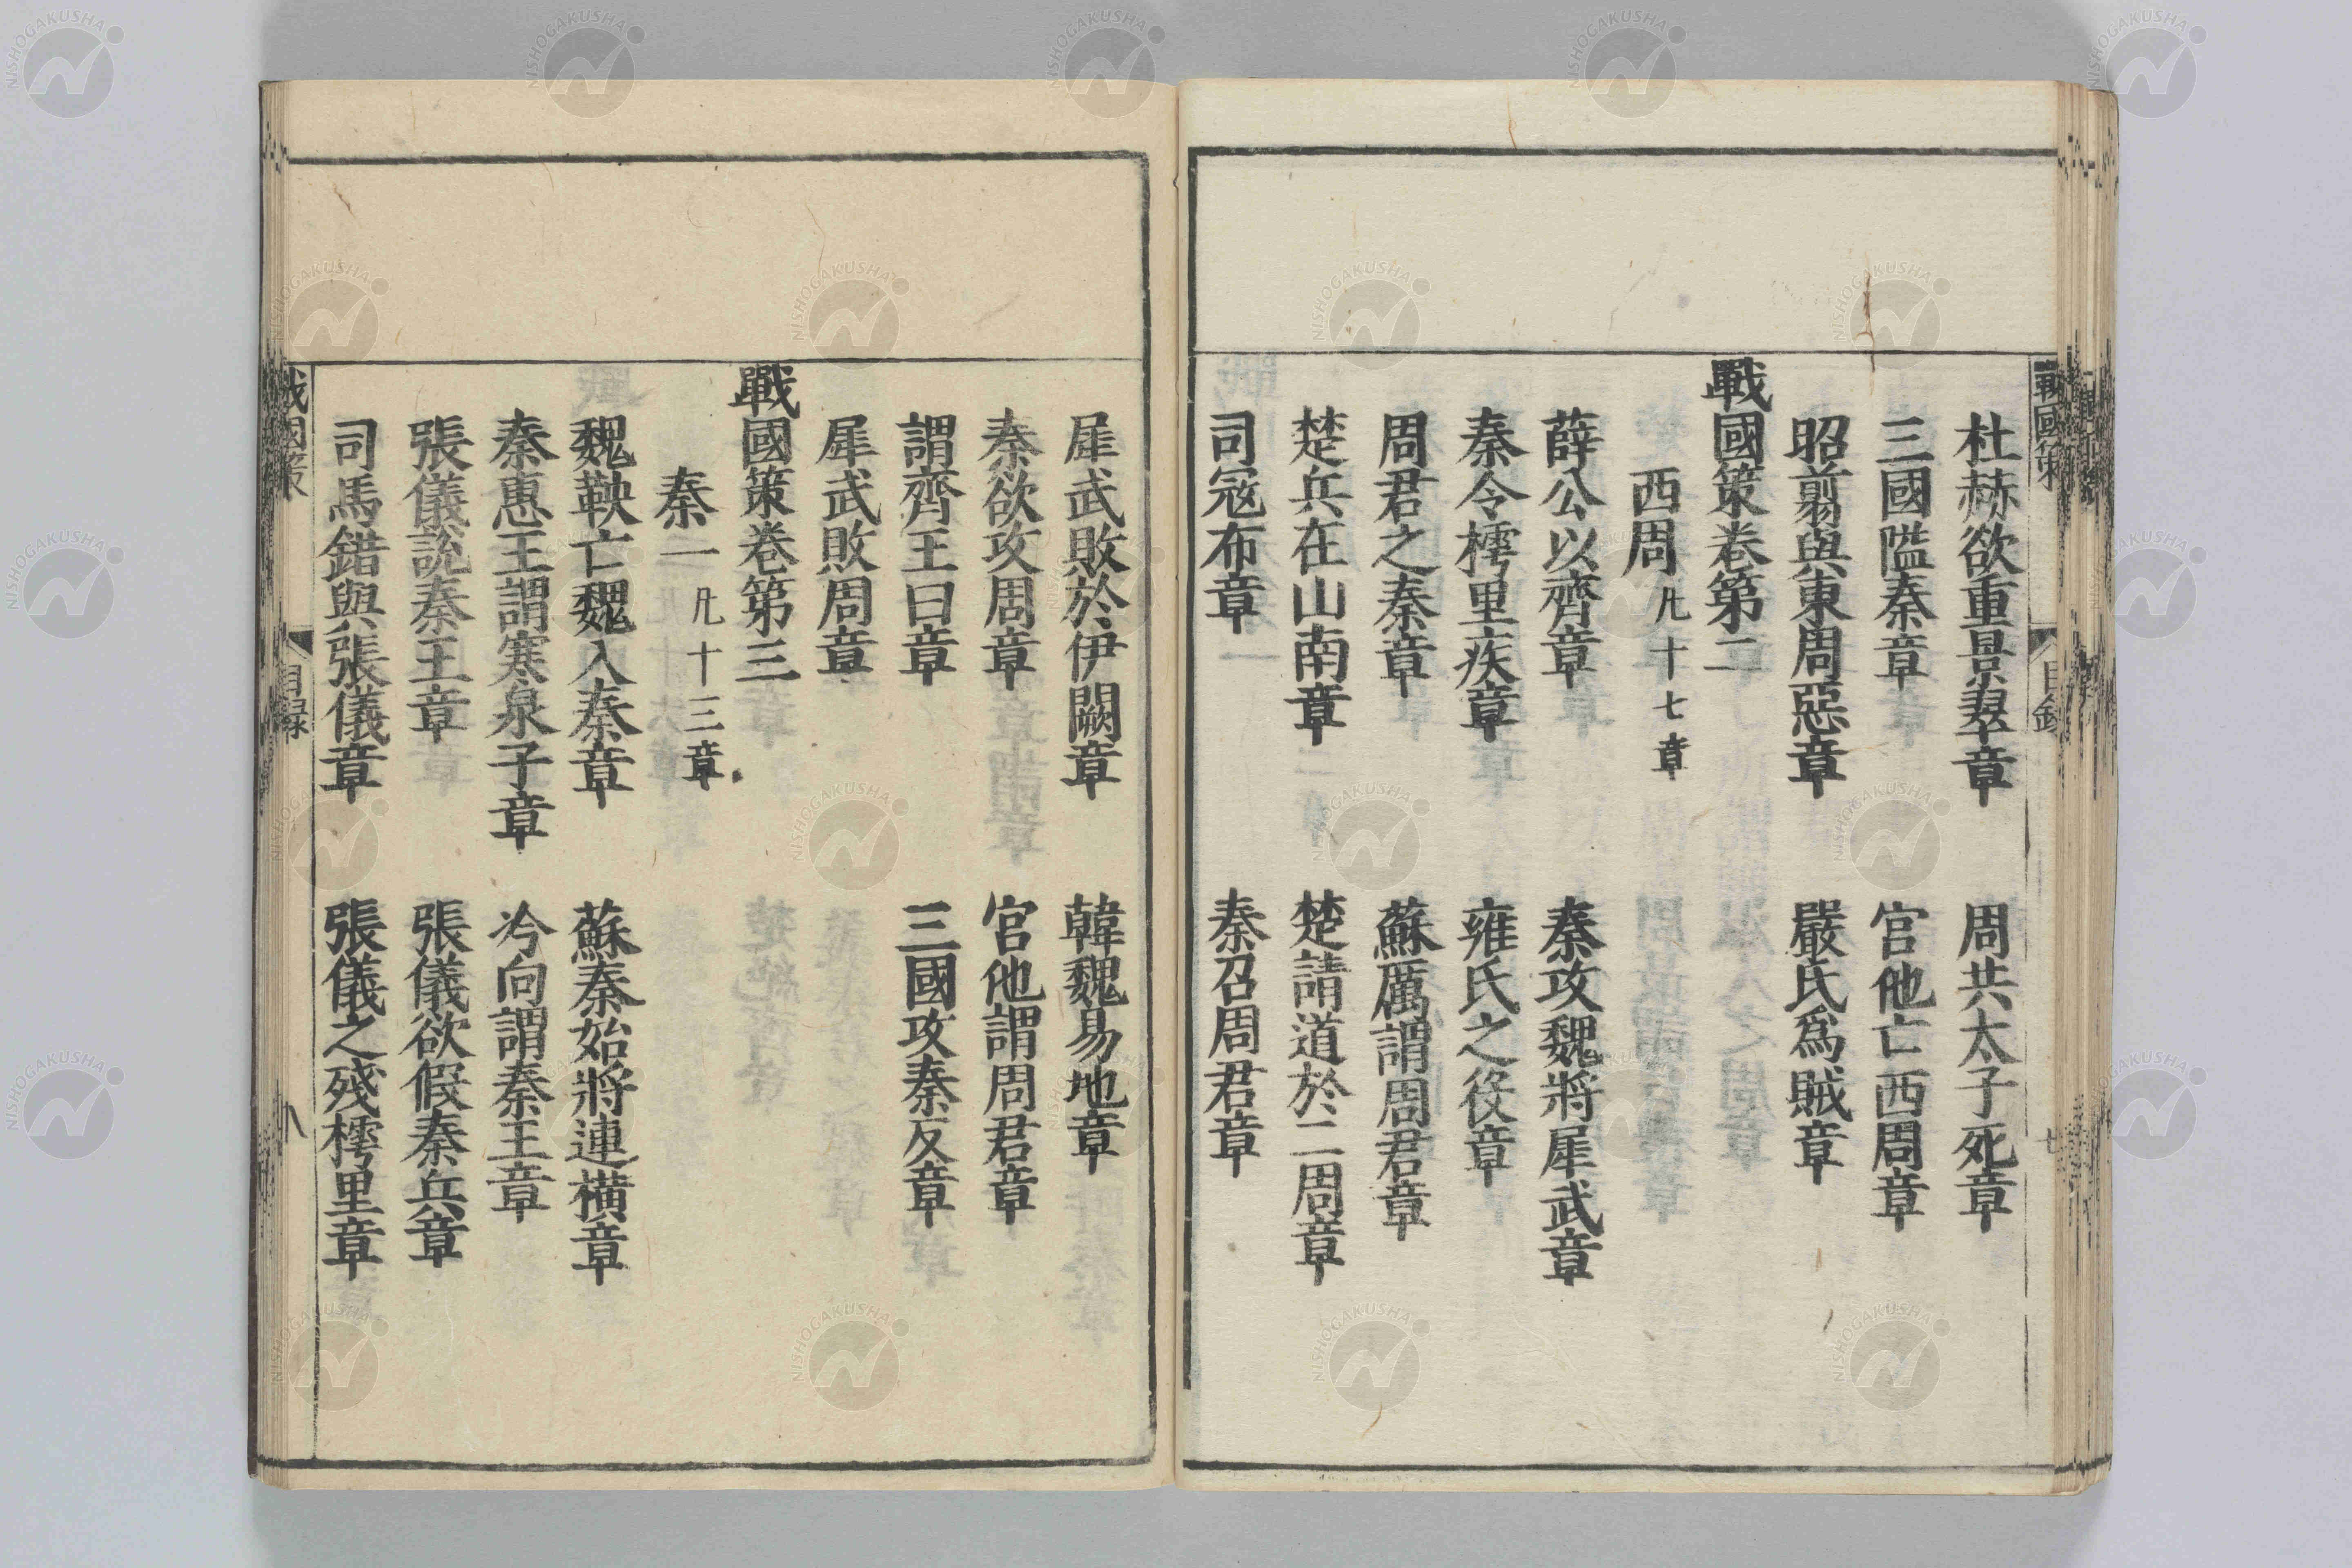 戰國策
目録
杜赫欲重景翠章　周共太子死章
三國隘秦章　宮他亡西周章
昭翦與東周惡章　嚴氏爲賊章
戰國策卷第二
西周 凡十七章
薛公以齊章　秦攻魏將犀武章
秦令樗里疾章　雍氏之役章
周君之秦章　蘇厲謂周君章
楚兵在山南章　楚請道於二周章
司寇布章　秦召周君章
犀武敗於伊闕章　韓魏易地章
秦欲攻周章　宮他謂周君章
謂齊王曰章　三國攻秦反章
犀武敗周章
戰國策卷第三
秦一 凡十三章
魏鞅亡魏入秦章　蘇秦始將連横章
秦惠王謂寒泉子章　冷向謂秦王章
張儀説秦王章　張儀欲假秦兵章
司馬錯與張儀章　張儀之殘樗里章
戰國策
目録
八
NISHOGAKUSHA